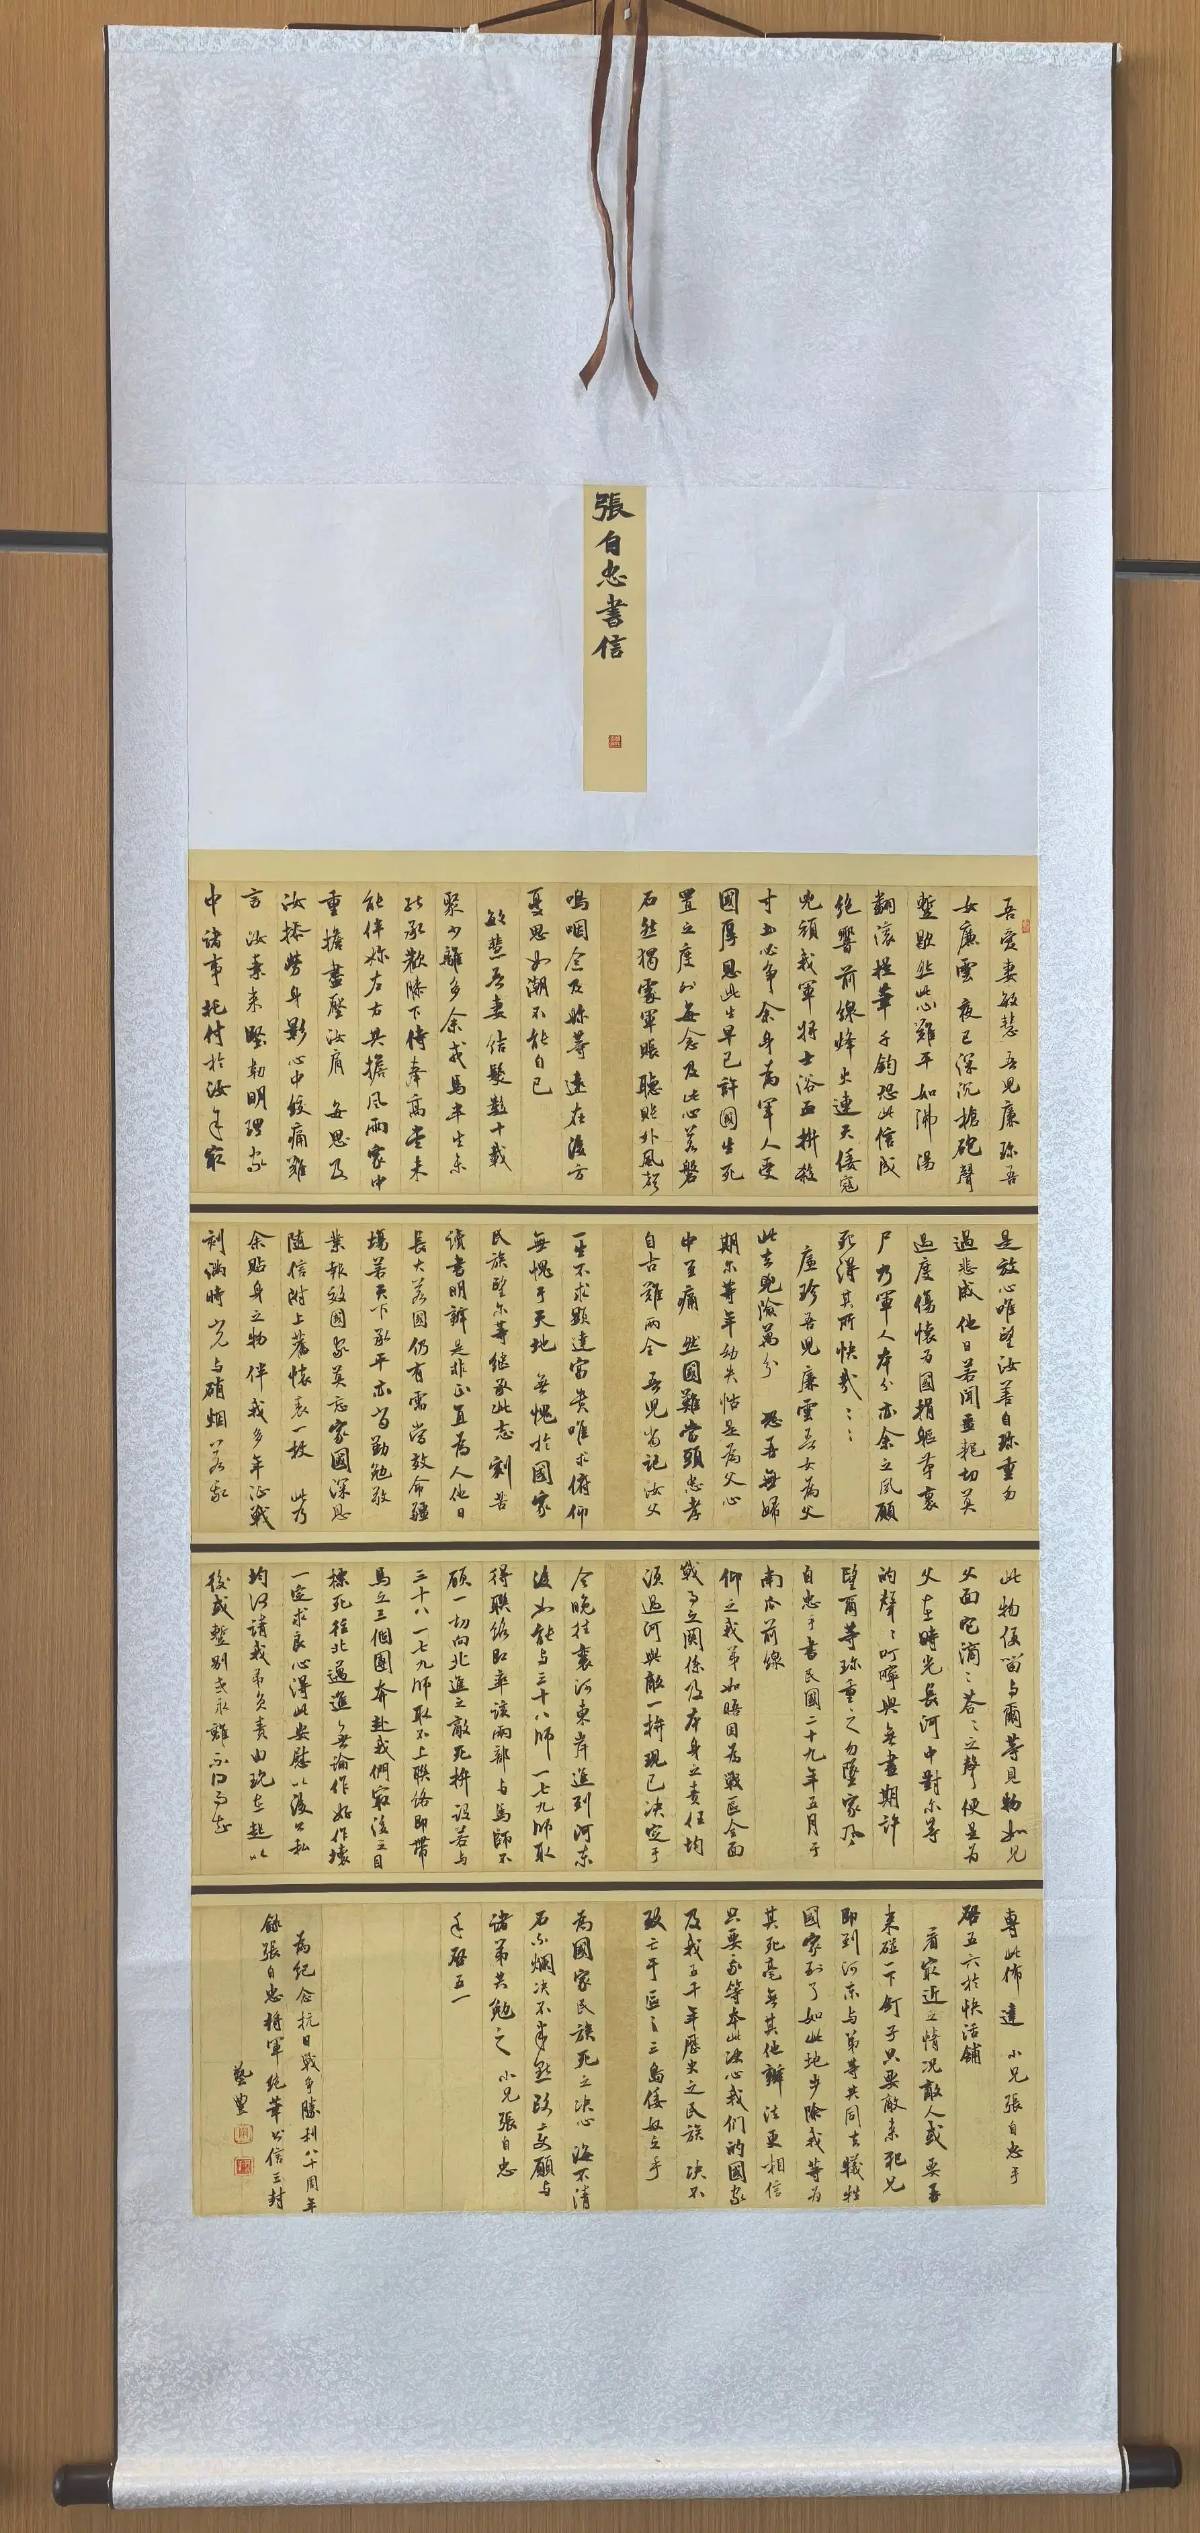 張自忠書信
吾愛妻敏慧 吾兒廉珍吾
女廉雲 夜已深沉槍砲聲
暫歇然此心難平如沸湯
翻滚提筆千鈞恐此信成
絶響前線烽火連天倭寇
兇頑我軍將士浴血拼殺
寸土必争余身為軍人受
國厚恩此生早已許國生死
置之度外每念及此心若磐
石然獨處軍賬聽賬外風聲
嗚咽念及妳等遠在後方
憂思如潮不能自已
敏慧吾妻 结髮數十載
聚少離多余戎馬半生未
能承歡膝下侍奉高堂未
能伴妳左右共擔風雨家中
重擔盡壓汝肩 每思及
汝操勞身影心中絞痛難
言 汝素来堅韌明理家
中諸事托付於汝余最
是放心唯望汝善自珍重勿
過悲戚他日若聞噩耗切莫
過度傷懷為國捐軀馬革裹
尸乃軍人本分亦余之夙願
死得其所快哉
廉珍吾兒廉雲吾女為父
此去兇險萬分 恐再無歸
期尔等年幼失怙是為父心
中至痛 然國難當頭忠孝
自古難兩全 吾兒當記汝父
一生不求顯達富貴唯求俯仰
無愧于天地 無愧於國家
民族望尔等继承此志 刻苦
讀書明辨是非正直為人他日
長大若國仍有需當效命疆
場若天下承平亦當勤勉敬
業報效國家莫忘家國深恩
随信附上舊懷表一枚 此乃
余貼身之物伴我多年征戰
刹滿時光与硝烟 若我
此物便留与爾等見物如見
父面它滴〻荅〻之聲便是為
父在時光長河中對尔等
的聲〻叮嚀與無盡期許
望爾等珍重之勿墜家風
自忠手書民國二十九年五月于
南瓜前線
仰之我弟如晤因為戰區全面
戰事之関係及本身之責任均
須過河與敵一拚現已决定于
今晚往襄河東岸進到河東
後如能与三十八師 一七九師取
得聯络即率該兩部与馬師不
顾一切向北進之敵死拚 設若与
三十八一七九師取不上聯络即帶
馬之三個團奔赴我們最後之目
標死往北邁進無論作好作壞
一定求良心得此安慰以後公私
均得請我弟负责由现在起以
後或暫别或永離不得而知
專此佈達 小兄張自忠手
啓五六於快活鋪
看最近之情况敵人或要再
来碰一下釘子只要敵来犯兄
即到河东与弟等共同去犠牲
國家到了如此地步除我等為
其死毫無其他辦法更相信
只要我等本此决心我们的國家
及我五千年歷史之民族 决不
致亡于區〻三島倭奴之手
為國家民族死之决心 海不清
石不爛决不半點改变願与
諸弟共勉之 小兄張自忠
手啓五一
為紀念抗日戰争勝利八十周年
錄張自忠將軍絶筆書信三封
藝豐